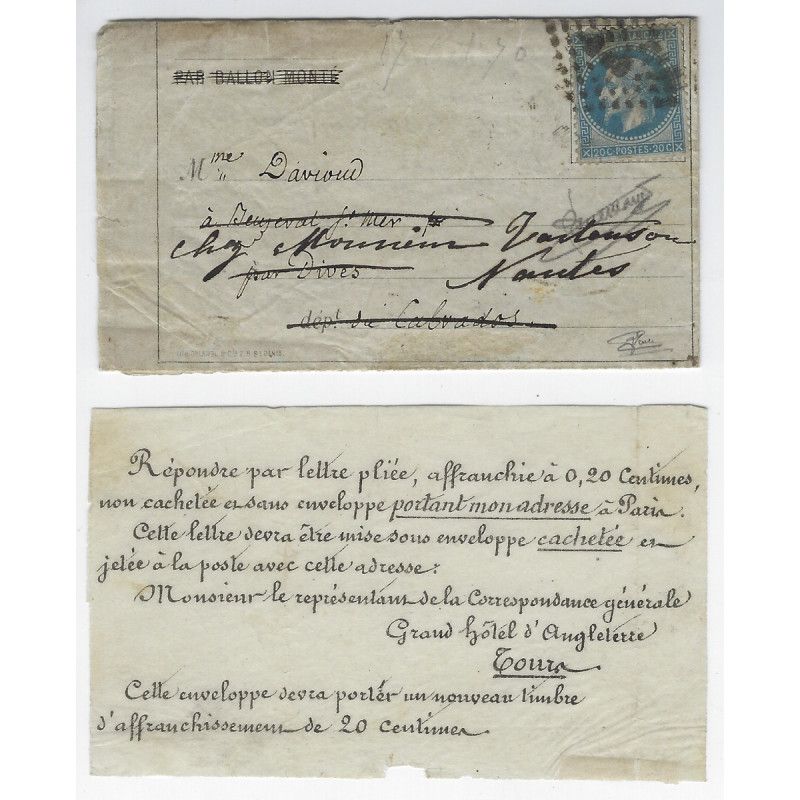 PAR BALLON MONTÉ
20 C POSTES 20 C
Mme Davioud
à Beuzeval s/ Mer
chez Monsieur
par Dives
Nantes
dépt. du Calvados
Répondre par lettre pliée, affranchie à 0,20 Centimes,
non cachetée et sans enveloppe portant mon adresse à Paris.
Cette lettre devra être mise sous enveloppe cachetée et
jetée à la poste avec cette adresse:
Monsieur le représentant de la Correspondance générale
Grand hôtel d'Angleterre
Tours
Cette enveloppe devra porter un nouveau timbre
d'affranchissement de 20 centimes.